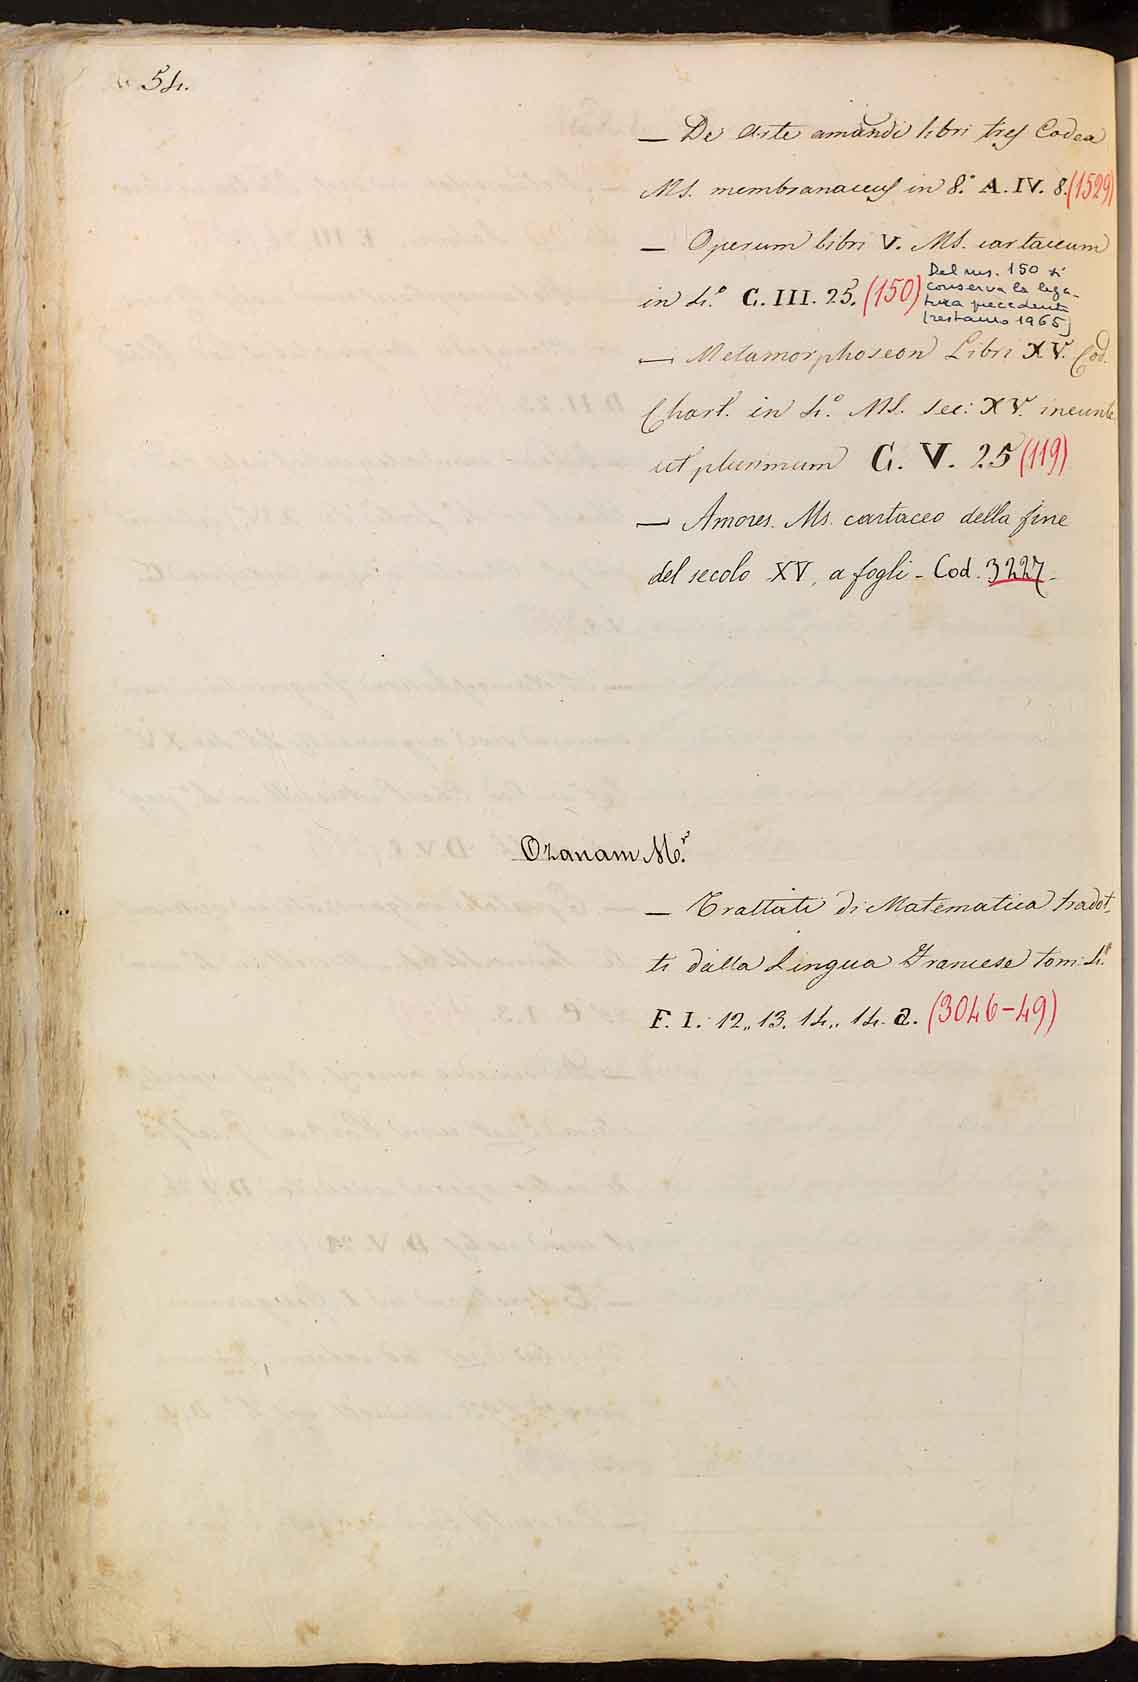 54.
— De Arte amandi libri tres Codex
MS. membranaceus in 8.° A. IV. 8. (1529)
— Operum libri V. MS. cartaceum
in 4.° C. III. 25. (150)
Del ms. 150 si
conserva la lega-
tura precedente
(restauro 1965)
— Metamorphoseon Libri XV. Cod.
Chart. in 4.° MS. sec: XV. ineunte
ut plurimum C. V. 25 (119)
— Amores. Ms. cartaceo della fine
del secolo XV, a fogli - Cod. 3227 -
Ozanam Mr.
— Trattati di Matematica tradot-
ti dalla Lingua Francese tom: 4.
F. I. 12,, 13. 14,, 14. a. (3046-49)